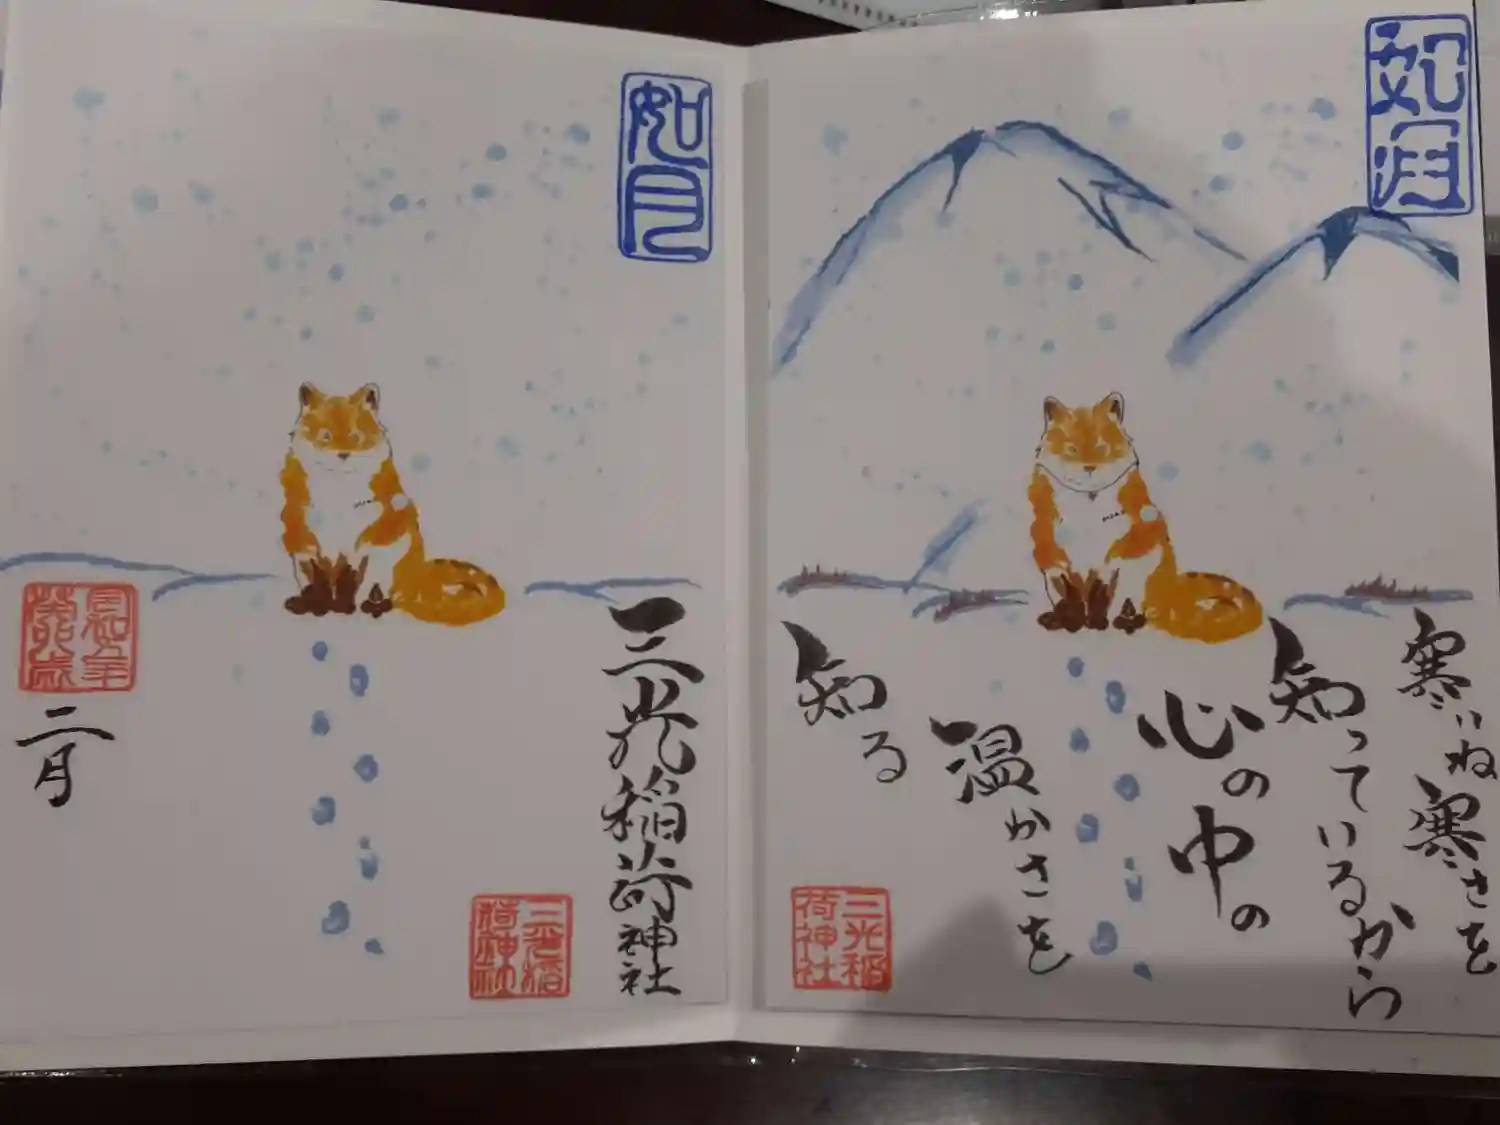 寒いね寒さを
知っているから
心の中の
温かさを
知る
三光稲
荷神社
如月
三光稲荷神社
三光稲
荷神社
二月